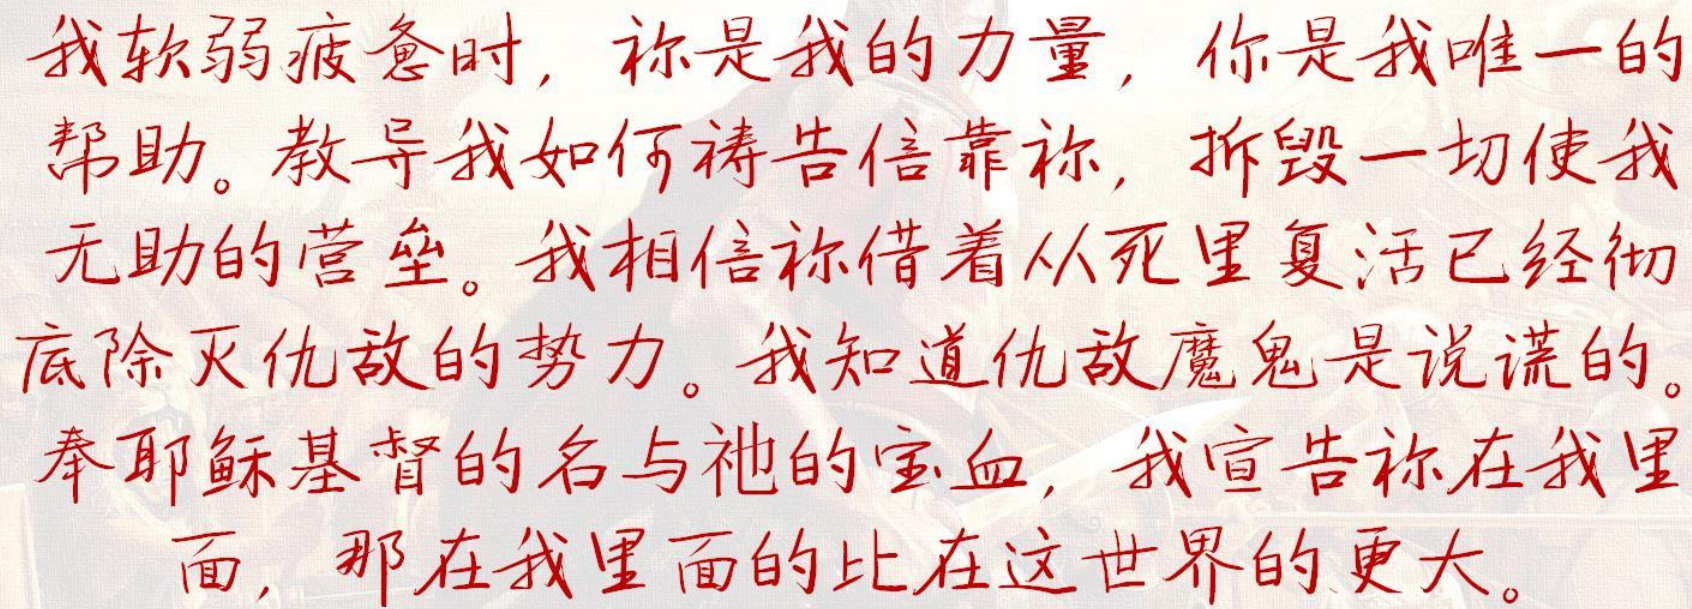 我软弱疲惫时，祢是我的力量，你是我唯一的
帮助。教导我如何祷告信靠祢，拆毁一切使我
无助的营垒。我相信祢借着从死里复活已经彻
底除灭仇敌的势力。我知道仇敌魔鬼是说谎的。
奉耶稣基督的名与祂的宝血，我宣告祢在我里
面，那在我里面的比在这世界的更大。